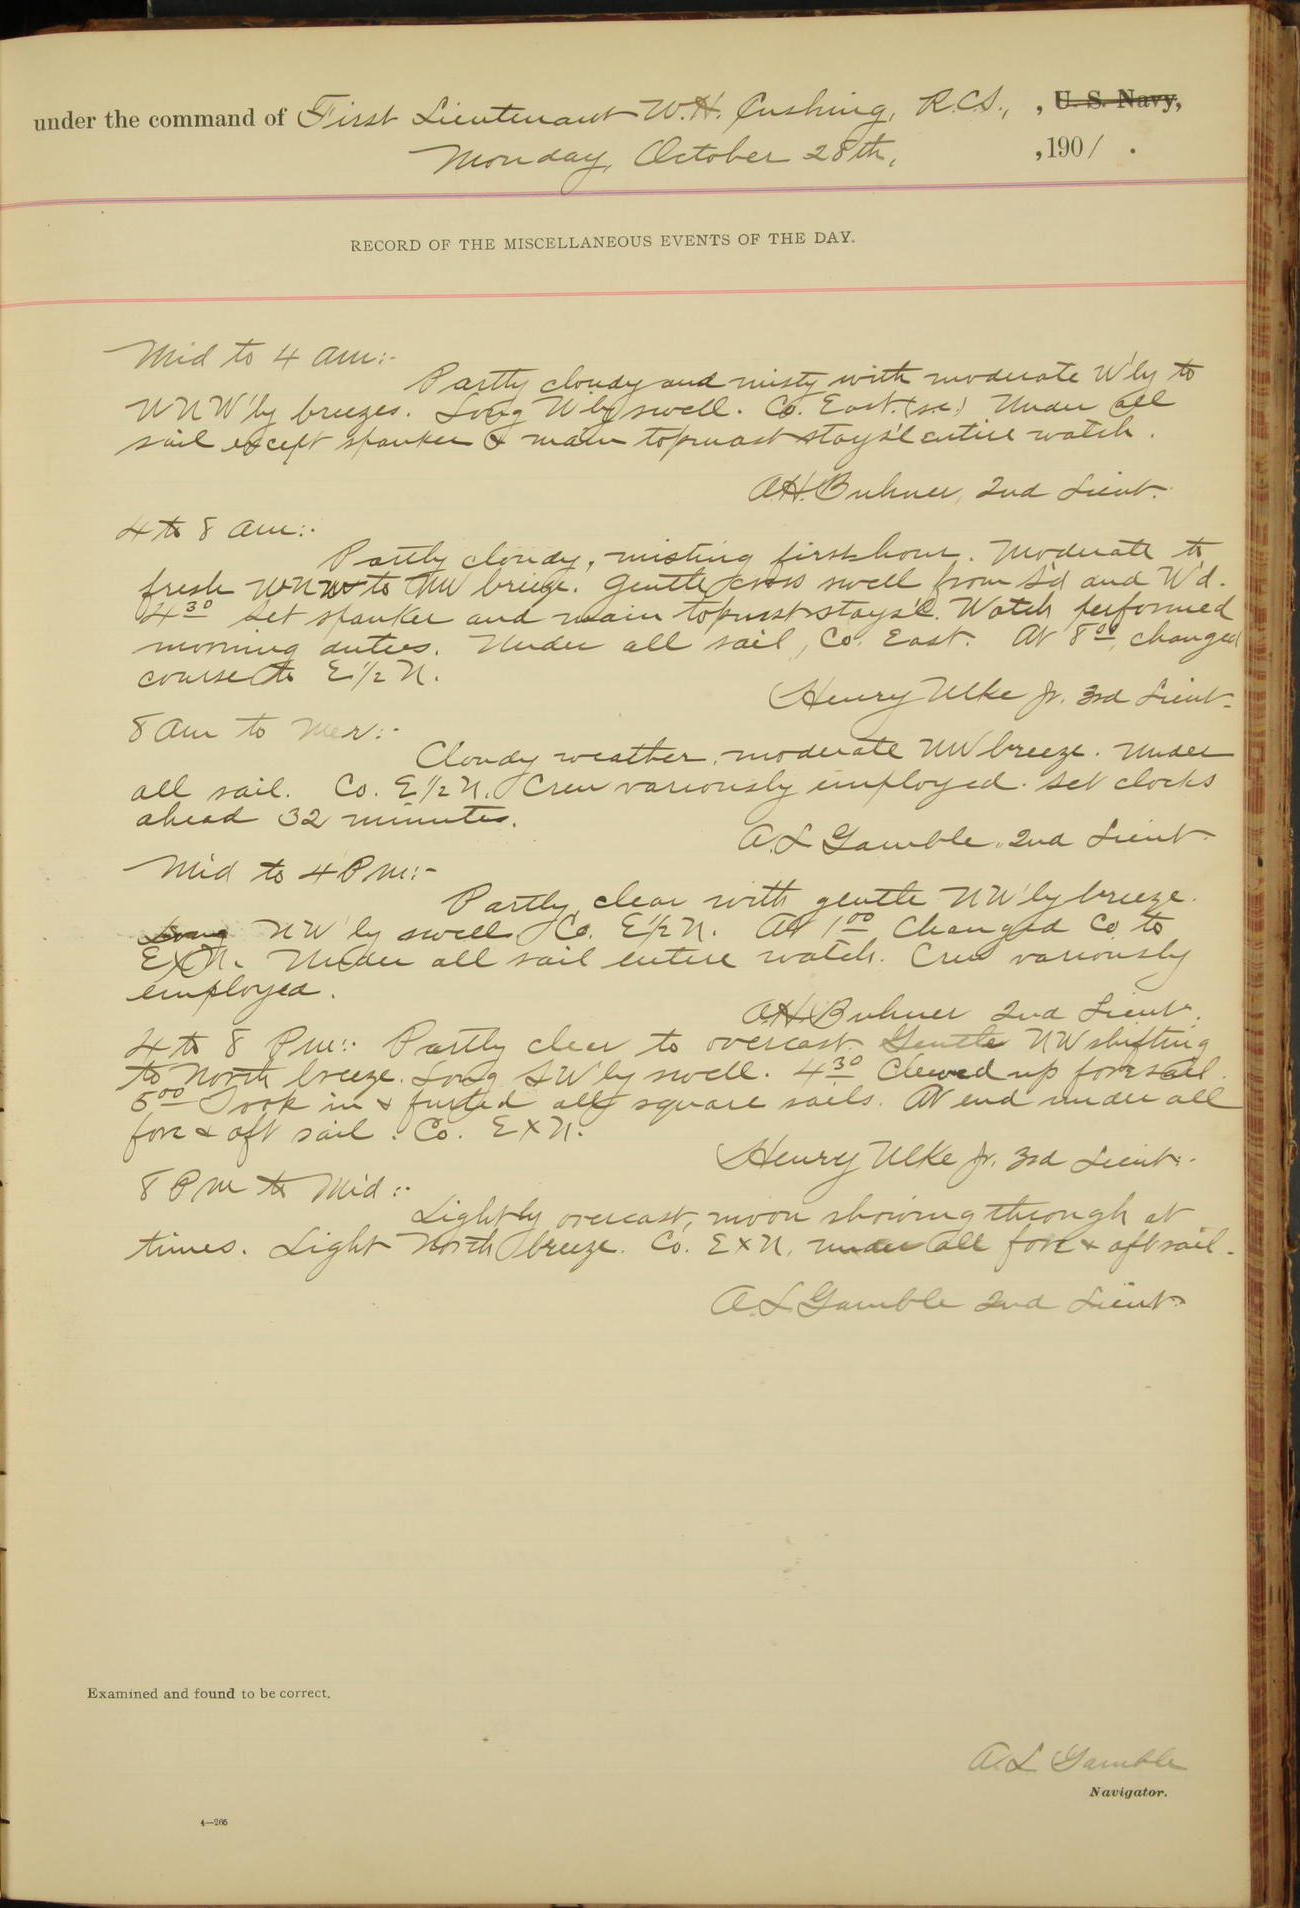 under the command of First Lieutenant W.H. Cushing, R.C.S., , U. S. Navy,
Monday, October 28th, , 1901 .
RECORD OF THE MISCELLANEOUS EVENTS OF THE DAY.
Mid to 4 am:-
Partly cloudy and misty with moderate W'ly to
WNW'ly breezes. Long W'ly swell. Co. East. (s.c.) Under all
sail except spanker & main topmast stays'l entire watch.
A.H. Buhner, 2nd Lieut.
4 to 8 am:-
Partly cloudy, misting first hour. Moderate to
fresh WNW to NW breeze. Gentle cross swell from S'd and W'd.
4 30 Set spanker and main topmast stays'l. Watch performed
morning duties. Under all sail, Co. East. At 8 00, changed
course to E 1/2 N.
Henry Ulke Jr. 3rd Lieut.
8 am to Mer:-
Cloudy weather, moderate NW breeze. Under
all sail. Co. E 1/2 N. Crew variously employed. Set clocks
ahead 32 minutes.
A.L Gamble, 2nd Lieut.
Mid to 4 Pm:-
Partly clear with gentle NW'ly breeze.
Long NW'ly swell. Co. E 1/2 N. At 1 00 Changed Co. to
ExN. Under all sail entire watch. Crew variously
employed.
A.H. Buhner 2nd Lieut.
4 to 8 Pm:- Partly clear to overcast. Gentle NW shifting
to North breeze. Long SW'ly swell. 4 30 Clewed up foresail.
5 00 Took in & furled all square sails. At end under all
fore & aft sail. Co. ExN.
Henry Ulke Jr. 3rd Lieut.
8 Pm to Mid:-
Lightly overcast, moon showing through at
times. Light North breeze. Co. ExN, under all fore & aft sail.
A.L Gamble 2nd Lieut.
Examined and found to be correct.
A.L Gamble
Navigator.
4—266